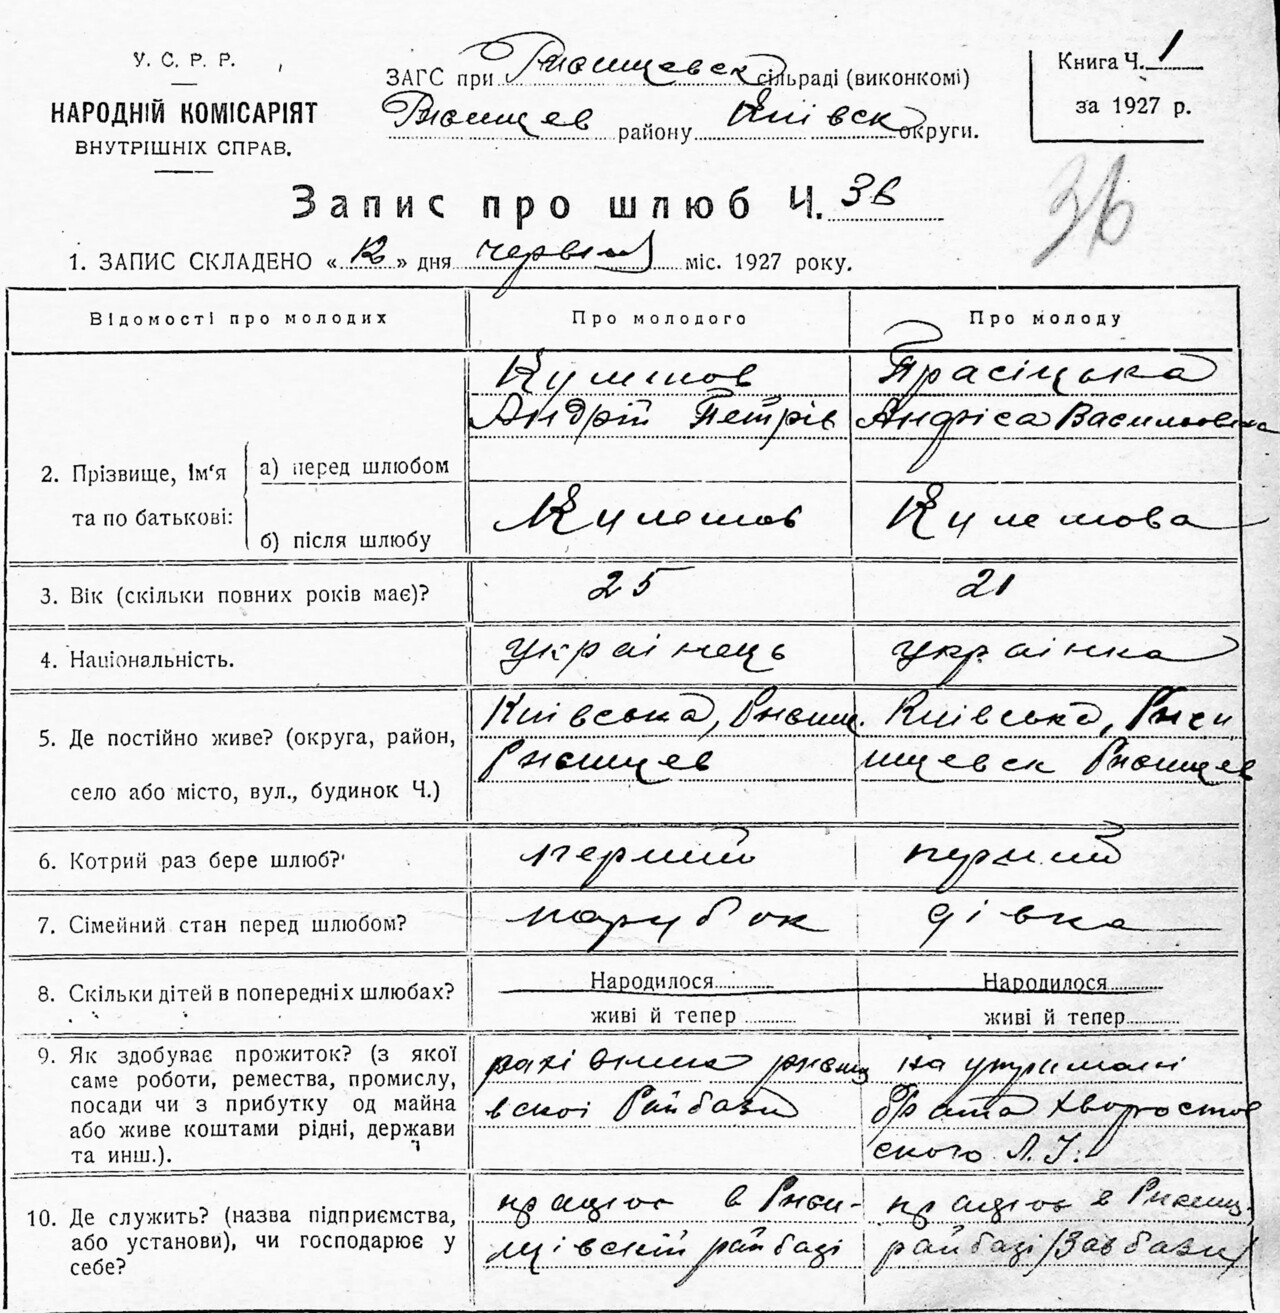 У. С. Р. Р.
НАРОДНІЙ КОМІСАРІЯТ
ВНУТРІШНІХ СПРАВ.
ЗАГС при Ржищевск сільраді (виконкомі)
Ржищев району Київск округи.
Книга Ч. 1
за 1927 р.
Запис про шлюб Ч. 36
36
1. ЗАПИС СКЛАДЕНО « » дня червня міс. 1927 року.
Відомості про молодих Про молодого Про молоду
2. Прізвище, Ім'я та по батькові:
а) перед шлюбом
Кулешов
Андрій Петрів
Андріса Василівна
б) після шлюбу
Кулешов Кулешова
3. Вік (скільки повних років має)? 25 21
4. Національність. українець українка
5. Де постійно живе? (округа, район,
село або місто, вул., будинок Ч.)
Київська, Ржищ.
Ржищев
Київська, Ржи
щевск Ржищев
6. Котрий раз бере шлюб? перший перший
7. Сімейний стан перед шлюбом? парубок дівка
8. Скільки дітей в попередніх шлюбах?
Народилося Народилося
живі й тепер живі й тепер
9. Як здобуває прожиток? (з якої
саме роботи, ремества, промислу,
посади чи з прибутку од майна
або живе коштами рідні, держави
та инш.).
вскоі Райбази
на утримані
брата Хворостов
ского Л. І.
10. Де служить? (назва підприємства,
або установи), чи господарює у
себе?
працює в Ржи-
щівській райбазі
працює в Ржищ.
райбазі /Завбази/